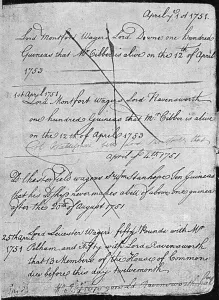 April ye 1st 1751.
Lord Montfort Wagers Lord Downe one hundred
Guineas that Mr Cibber is alive on the 12th of April
1753
1st April 1751
Lord Montfort Wagers Lord Ravensworth
one hundred Guineas that Mr Cibber is alive
on the 12th of April 1753
April ye 4th 1751
Wagers Wm Stanhope Ten Guineas
that his never makes a bett of above one guinea
after the of August 1751
25 April Lord Leicester Wagers fifty Pounds with Mr
1751 Pelham and fifty with Lord Ravensworth
that 13 Members of the House of Commons
die before this day twelvemonth